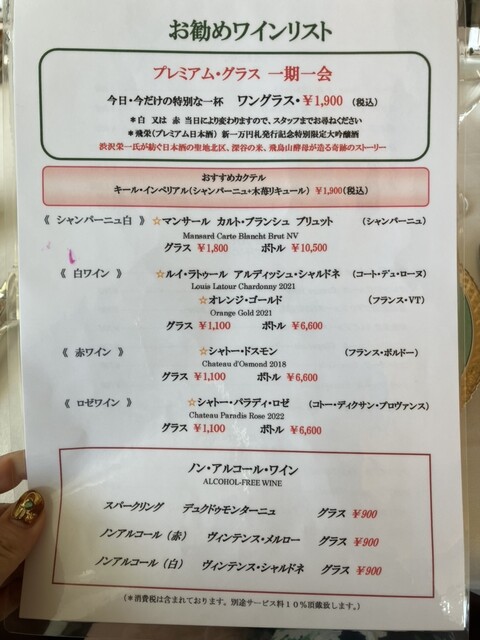 お勧めワインリスト
プレミアム・グラス 一期一会
今日・今だけの特別な一杯 ワングラス・¥1,900 (税込)
*白 又は 赤 当日により変わりますので、スタッフまでお尋ねください
*飛栄(プレミアム日本酒) 新一万円札発行記念特別限定大吟醸酒
渋沢栄一氏が紡ぐ日本酒の聖地北区、深谷の米、飛鳥山酵母が造る奇跡のストーリー
おすすめカクテル
キール・インペリアル(シャンパーニュ+木苺リキュール) ¥1,900(税込)
《 シャンパーニュ白 》 ☆マンサール カルト・ブランシュ ブリュット (シャンパーニュ)
Mansard Carte Blancht Brut NV
グラス ¥1,800 ボトル ¥10,500
《 白ワイン 》 ☆ルイ・ラトゥール アルディッシュ・シャルドネ (コート・デュ・ローヌ)
Louis Latour Chardonny 2021
☆オレンジ・ゴールド (フランス・VT)
Orange Gold 2021
グラス ¥1,100 ボトル ¥6,600
《 赤ワイン 》 ☆シャトー・ドスモン (フランス・ボルドー)
Chateau d'Osmond 2018
グラス ¥1,100 ボトル ¥6,600
《 ロゼワイン 》 ☆シャトー・パラディ・ロゼ (コトー・ディクサン・プロヴァンス)
Chateau Paradis Rose 2022
グラス ¥1,100 ボトル ¥6,600
ノン・アルコール・ワイン
ALCOHOL-FREE WINE
スパークリング デュクドゥモンターニュ グラス ¥900
ノンアルコール(赤) ヴィンテンス・メルロー グラス ¥900
ノンアルコール(白) ヴィンテンス・シャルドネ グラス ¥900
(*消費税は含まれております。別途サービス料10%頂戴致します。)